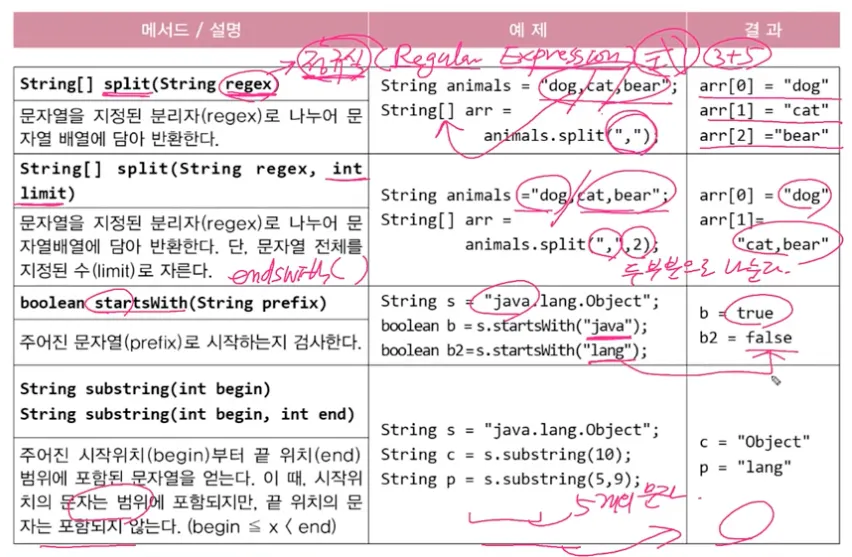 메서드 / 설명
예 제
결 과
정규식 (Regular Expression) 3+5
String[] split(String regex)
문자열을 지정된 분리자(regex)로 나누어 문
자열 배열에 담아 반환한다.
String animals = "dog,cat,bear";
String[] arr =
animals.split(",");
arr[0] = "dog"
arr[1] = "cat"
arr[2] ="bear"
String[] split(String regex, int
limit)
문자열을 지정된 분리자(regex)로 나누어 문
자열배열에 담아 반환한다. 단, 문자열 전체를
지정된 수(limit)로 자른다.
endsWith( )
String animals ="dog,cat,bear";
String[] arr =
animals.split(",",2);
두 부분으로 나눈다.
arr[0] = "dog"
arr[1]=
"cat,bear"
boolean startsWith(String prefix)
주어진 문자열(prefix)로 시작하는지 검사한다.
String s = "java.lang.Object";
boolean b = s.startsWith("java");
boolean b2=s.startsWith("lang");
b = true
b2 = false
String substring(int begin)
String substring(int begin, int end)
주어진 시작위치(begin)부터 끝 위치(end)
범위에 포함된 문자열을 얻는다. 이 때, 시작위
치의 문자는 범위에 포함되지만, 끝 위치의 문
자는 포함되지 않는다. (begin ≦ x < end)
String s = "java.lang.Object";
String c = s.substring(10);
String p = s.substring(5,9);
5개의 문자
c = "Object"
p = "lang"